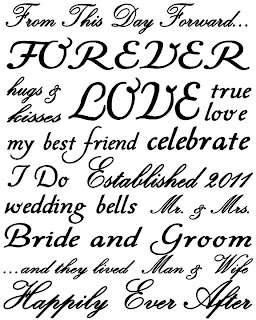 From This Day Forward...
FOREVER
hugs & kisses LOVE true love
my best friend celebrate
I Do Established 2011
wedding bells Mr. & Mrs.
Bride and Groom
...and they lived Man & Wife
Happily Ever After